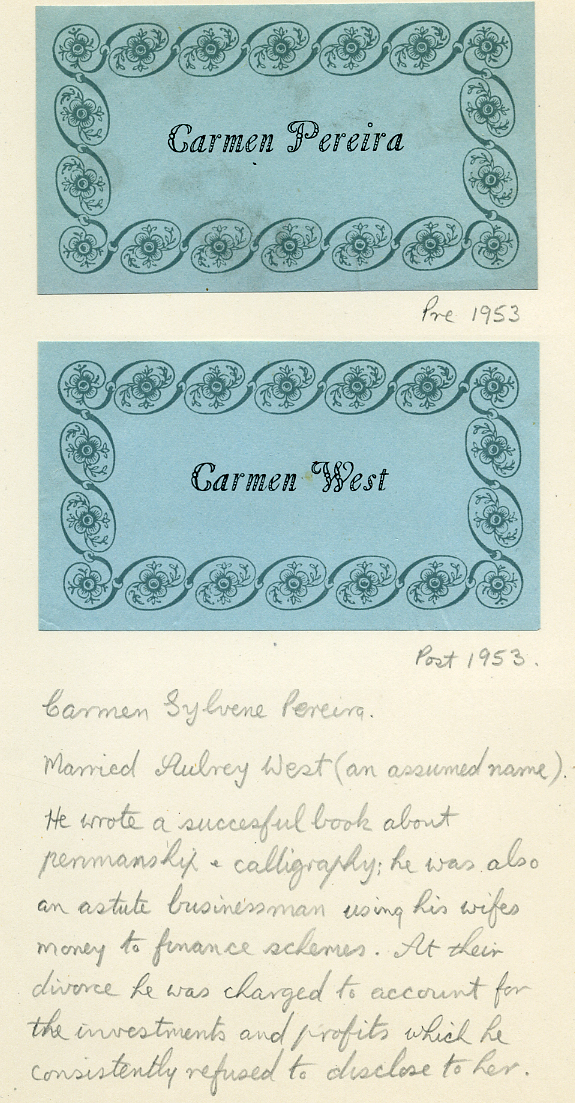 Carmen Pereira
Pre 1953
Carmen West
Post 1953.
Carmen Sylvene Pereira.
Married Aubrey West (an assumed name).
He wrote a succesful book about
penmanship + calligraphy; he was also
an astute businessman using his wifes
money to finance schemes. At their
divorce he was charged to account for
the investments and profits which he
consistently refused to disclose to her.